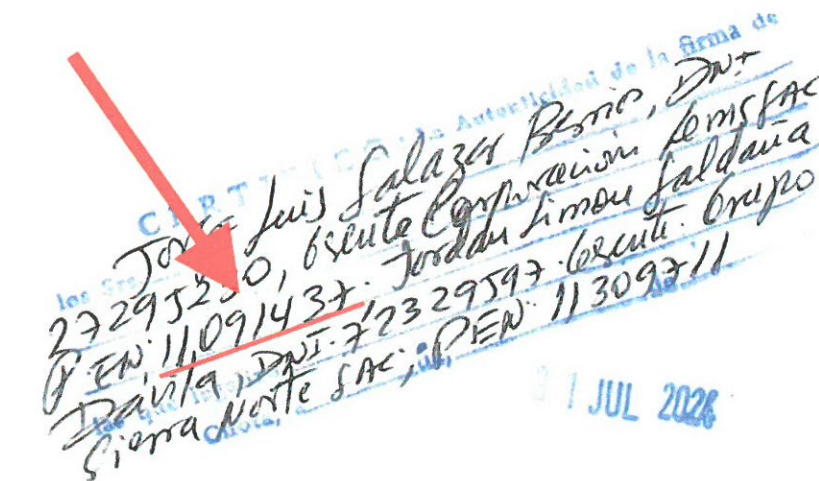 CERTIFICO: La Autenticidad de la firma de
Jorge Luis Salazar Berrios, DNI
27295250, Gerente Corporación Kems SAC
PEN: 11091437; Jordan Limon Saldaña
Davila, DNI. 72329597. Gerente. Grupo
Sierra Norte SAC; PEN: 11309711
Chota,
31 JUL 2026